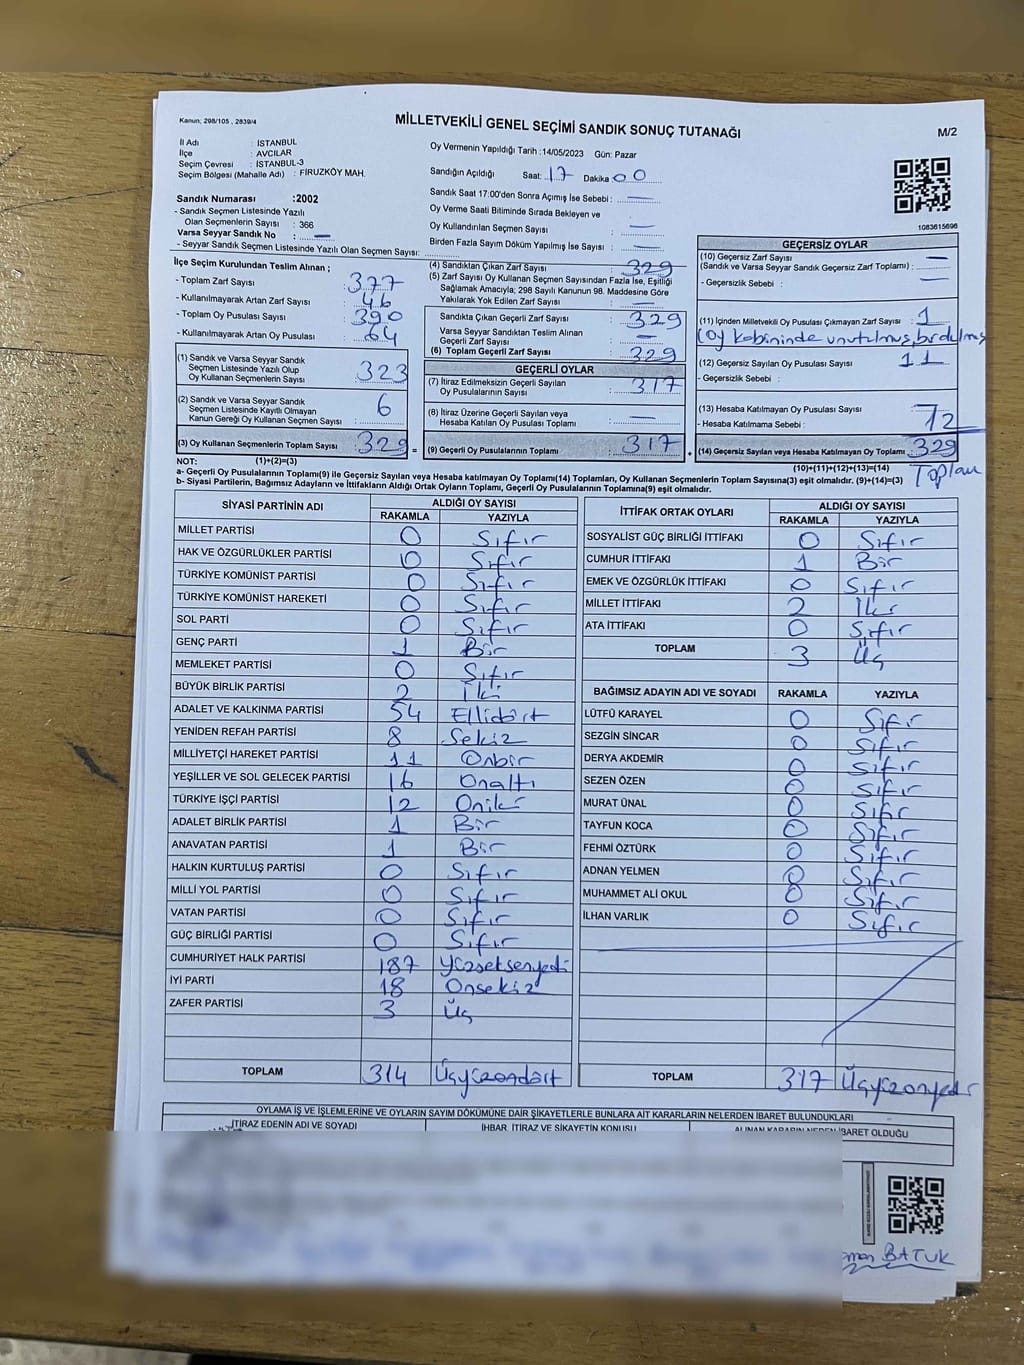 Kanun; 298/105 , 2839/4
MİLLETVEKİLİ GENEL SEÇİMİ SANDIK SONUÇ TUTANAĞI
M/2
İl Adı : İSTANBUL
İlçe : AVCILAR
Seçim Çevresi : İSTANBUL-3
Seçim Bölgesi (Mahalle Adı) : FİRUZKÖY MAH.
Oy Vermenin Yapıldığı Tarih :14/05/2023 Gün: Pazar
Sandığın Açıldığı Saat: 17 Dakika 00
Sandık Saat 17:00'den Sonra Açılmış İse Sebebi : —
Oy Verme Saati Bitiminde Sırada Bekleyen ve
Oy Kullandırılan Seçmen Sayısı : —
Birden Fazla Sayım Döküm Yapılmış İse Sayısı : —
1083615696
Sandık Numarası :2002
- Sandık Seçmen Listesinde Yazılı
Olan Seçmenlerin Sayısı : 366
Varsa Seyyar Sandık No : —
- Seyyar Sandık Seçmen Listesinde Yazılı Olan Seçmen Sayısı:
İlçe Seçim Kurulundan Teslim Alınan ;
- Toplam Zarf Sayısı : 377
- Kullanılmayarak Artan Zarf Sayısı : 46
- Toplam Oy Pusulası Sayısı : 390
- Kullanılmayarak Artan Oy Pusulası : 64
(1) Sandık ve Varsa Seyyar Sandık
Seçmen Listesinde Yazılı Olup
Oy Kullanan Seçmenlerin Sayısı : 323
(2) Sandık ve Varsa Seyyar Sandık
Seçmen Listesinde Kayıtlı Olmayan
Kanun Gereği Oy Kullanan Seçmen Sayısı : 6
(3) Oy Kullanan Seçmenlerin Toplam Sayısı : 329
(4) Sandıktan Çıkan Zarf Sayısı : 329
(5) Zarf Sayısı Oy Kullanan Seçmen Sayısından Fazla İse, Eşitliği
Sağlamak Amacıyla; 298 Sayılı Kanunun 98. Maddesine Göre
Yakılarak Yok Edilen Zarf Sayısı : —
Sandıkta Çıkan Geçerli Zarf Sayısı : 329
Varsa Seyyar Sandıktan Teslim Alınan
Geçerli Zarf Sayısı : —
(6) Toplam Geçerli Zarf Sayısı : 329
GEÇERLİ OYLAR
(7) İtiraz Edilmeksizin Geçerli Sayılan
Oy Pusulalarının Sayısı : 317
(8) İtiraz Üzerine Geçerli Sayılan veya
Hesaba Katılan Oy Pusulası Toplamı : —
= (9) Geçerli Oy Pusulalarının Toplamı : 317
GEÇERSİZ OYLAR
(10) Geçersiz Zarf Sayısı
(Sandık ve Varsa Seyyar Sandık Geçersiz Zarf Toplamı) : —
- Geçersizlik Sebebi : —
(11) İçinden Milletvekili Oy Pusulası Çıkmayan Zarf Sayısı : 1
(Oy kabininde unutulmuş,
(12) Geçersiz Sayılan Oy Pusulası Sayısı : 11
- Geçersizlik Sebebi :
(13) Hesaba Katılmayan Oy Pusulası Sayısı :
- Hesaba Katılmama Sebebi : 12
+ (14) Geçersiz Sayılan veya Hesaba Katılmayan Oy Toplamı : 329
Toplam
NOT: (1)+(2)=(3)
(10)+(11)+(12)+(13)=(14)
a- Geçerli Oy Pusulalarının Toplamı(9) ile Geçersiz Sayılan veya Hesaba katılmayan Oy Toplamı(14) Toplamları, Oy Kullanan Seçmenlerin Toplam Sayısına(3) eşit olmalıdır. (9)+(14)=(3)
b- Siyasi Partilerin, Bağımsız Adayların ve İttifakların Aldığı Ortak Oyların Toplamı, Geçerli Oy Pusulalarının Toplamına(9) eşit olmalıdır.
SİYASİ PARTİNİN ADI ALDIĞI OY SAYISI
RAKAMLA YAZIYLA
MİLLET PARTİSİ 0 Sıfır
HAK VE ÖZGÜRLÜKLER PARTİSİ 0 Sıfır
TÜRKİYE KOMÜNİST PARTİSİ 0 Sıfır
TÜRKİYE KOMÜNİST HAREKETİ 0 Sıfır
SOL PARTİ 0 Sıfır
GENÇ PARTİ 1 Bir
MEMLEKET PARTİSİ 0 Sıfır
BÜYÜK BİRLİK PARTİSİ 2 İki
ADALET VE KALKINMA PARTİSİ 54 Ellidört
YENİDEN REFAH PARTİSİ 8 Sekiz
MİLLİYETÇİ HAREKET PARTİSİ 11 Onbir
YEŞİLLER VE SOL GELECEK PARTİSİ 16 Onaltı
TÜRKİYE İŞÇİ PARTİSİ 12 Oniki
ADALET BİRLİK PARTİSİ 1 Bir
ANAVATAN PARTİSİ 1 Bir
HALKIN KURTULUŞ PARTİSİ 0 Sıfır
MİLLİ YOL PARTİSİ 0 Sıfır
VATAN PARTİSİ 0 Sıfır
GÜÇ BİRLİĞİ PARTİSİ 0 Sıfır
CUMHURİYET HALK PARTİSİ 187 Yüzseksenyedi
İYİ PARTİ 18 Onsekiz
ZAFER PARTİSİ 3 Üç
TOPLAM 314 Üçyüzondört
İTTİFAK ORTAK OYLARI ALDIĞI OY SAYISI
RAKAMLA YAZIYLA
SOSYALİST GÜÇ BİRLİĞİ İTTİFAKI 0 Sıfır
CUMHUR İTTİFAKI 1 Bir
EMEK VE ÖZGÜRLÜK İTTİFAKI 0 Sıfır
MİLLET İTTİFAKI 2 İki
ATA İTTİFAKI 0 Sıfır
TOPLAM 3 Üç
BAĞIMSIZ ADAYIN ADI VE SOYADI RAKAMLA YAZIYLA
LÜTFÜ KARAYEL 0 Sıfır
SEZGİN SİNCAR 0 Sıfır
DERYA AKDEMİR 0 Sıfır
SEZEN ÖZEN 0 Sıfır
MURAT ÜNAL 0 Sıfır
TAYFUN KOCA 0 Sıfır
FEHMİ ÖZTÜRK 0 Sıfır
ADNAN YELMEN 0 Sıfır
MUHAMMET ALİ OKUL 0 Sıfır
İLHAN VARLIK 0 Sıfır
TOPLAM 317 Üçyüzonyedi
OYLAMA İŞ VE İŞLEMLERİNE VE OYLARIN SAYIM DÖKÜMÜNE DAİR ŞİKAYETLERLE BUNLARA AİT KARARLARIN NELERDEN İBARET BULUNDUKLARI
İTİRAZ EDENİN ADI VE SOYADI İHBAR, İTİRAZ VE ŞİKAYETİN KONUSU ALINAN KARARIN NEDEN İBARET OLDUĞU
BATUK